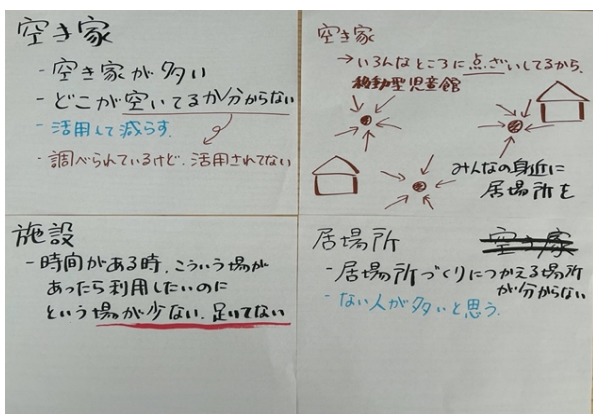 空き家
- 空き家が多い
- どこが空いてるか分からない
- 活用して減らす.
- 調べられているけど、活用されてない
空き家
→いろんなところに点ざいしてるから、
移動型児童館
みんなの身近に
居場所を
施設
- 時間がある時、こういう場が
あったら利用したいのに
という場が少ない、足りてない
居場所
空き家
- 居場所づくりにつかえる場所
が分からない
- ない人が多いと思う.